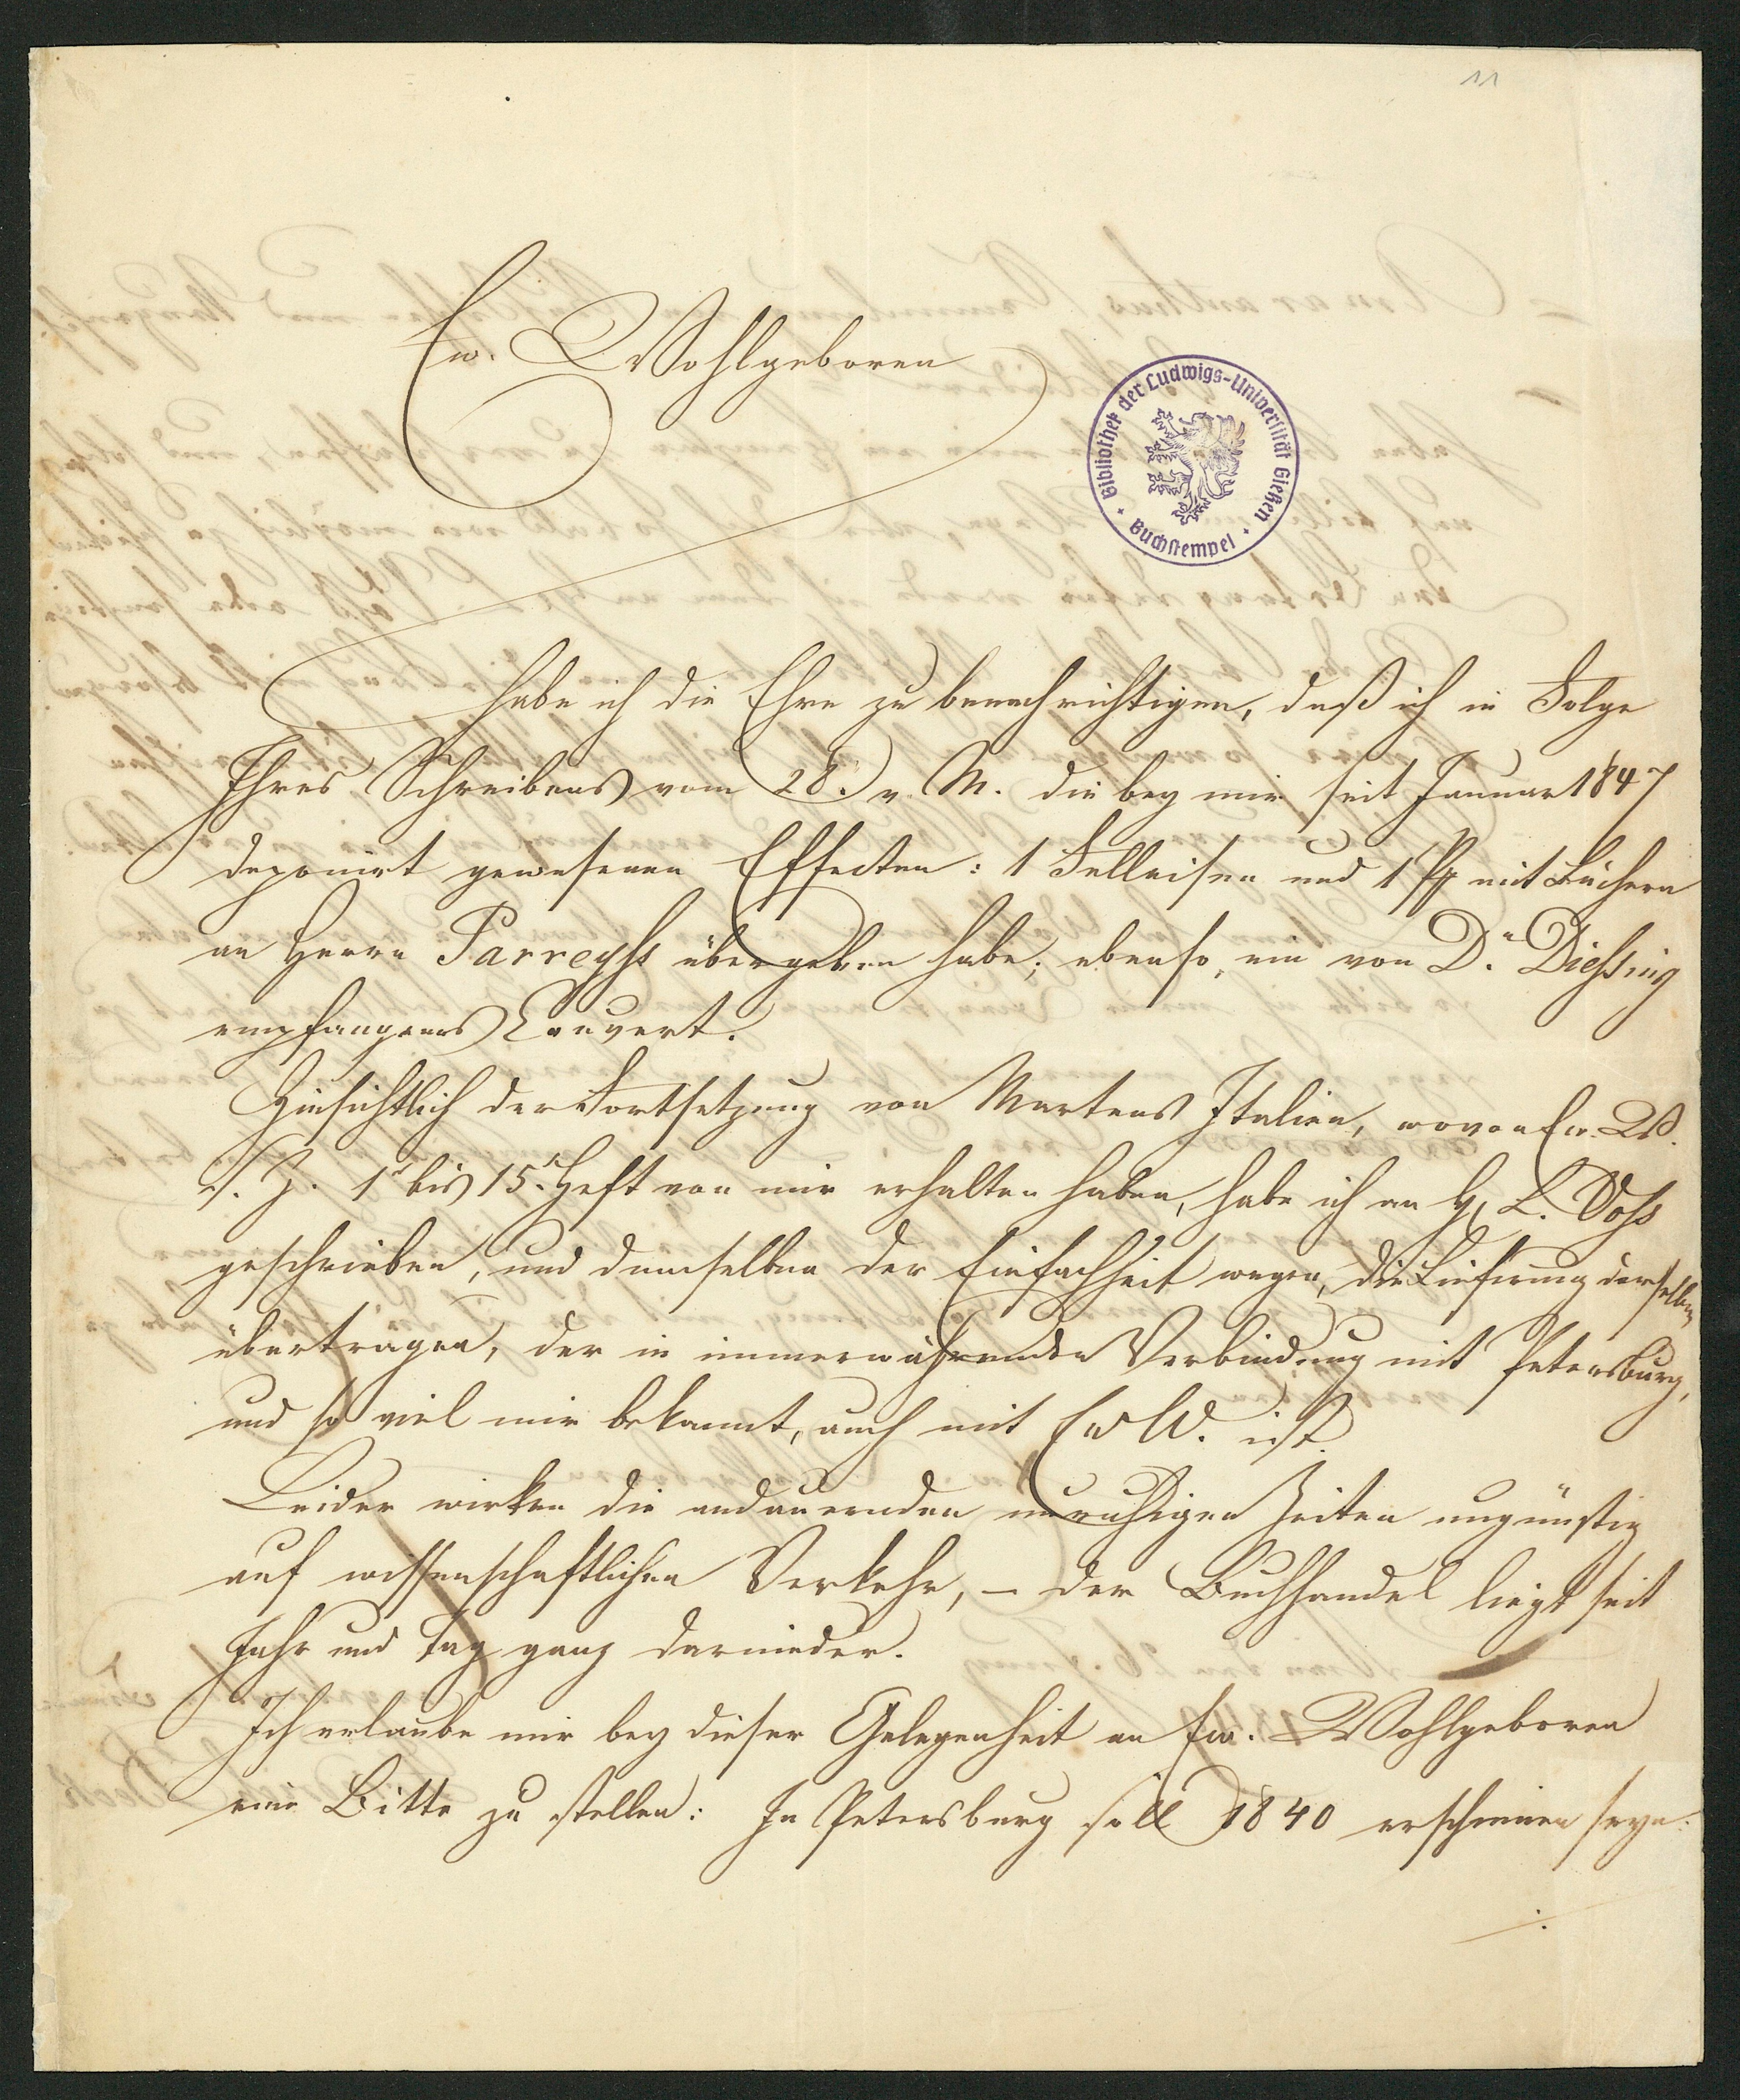 11
Ew. Wohlgeboren
Bibliothek der Ludwigs-Universität Gießen
Buchstempel
habe ich die Ehre zu benachrichtigen, daß ich in Folge
Ihres Schreibens vom 28. v. M. die bey mir seit Januar 1847
deponirt gewesenen Effecten: 1 Felleisen und 1 mit Büchern
an Herrn Parreyss übergeben habe; ebenso, ein von Dr. Diessing
empfangenes Couvert.
Hinsichtlich der Fortsetzung von Martens Italien, wovon Ew. W.
s. Z. 1r bis 15r Heft von mir erhalten haben, habe ich an H. L. Voss
geschrieben, und demselben der Einfachheit wegen, die Lieferung derselben
übertragen, der in immerwährender Verbindung mit Petersburg,
und so viel mir bekannt, auch mit Ew W. ist.
Leider wirken die andauernden unruhigen Zeiten ungünstig
auf wissenschaftlichen Verkehr, – der Buchhandel liegt seit
Jahr und Tag ganz darnieder.
Ich erlaube mir bey dieser Gelegenheit an Ew. Wohlgeboren
eine Bitte zu stellen: In Petersburg soll 1840 erschienen seyn: